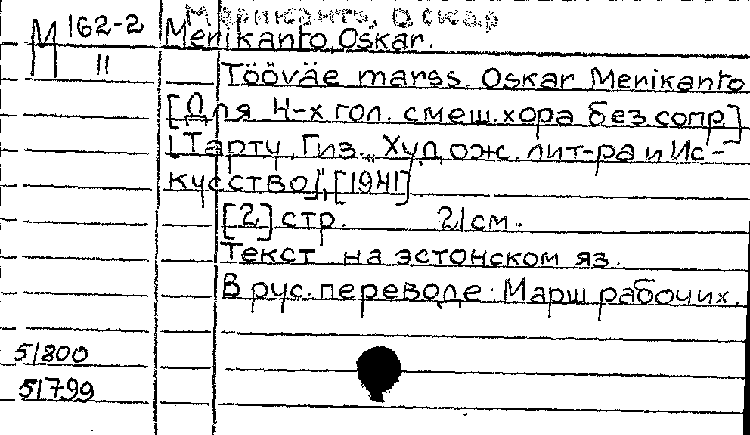 Мериканто, Оскар
М 162-2
II
Merikanto, Oskar.
Tööväe marss. Oskar Merikanto
[Для 4-х гол. смеш. хора без сопр.]
[Тарту, Гиз. „Худож. лит-ра и Ис-
кусство", [1941]
[2] стр. 21 см.
Текст на эстонском яз.
В рус. переводе: Марш рабочих.
51800
51799